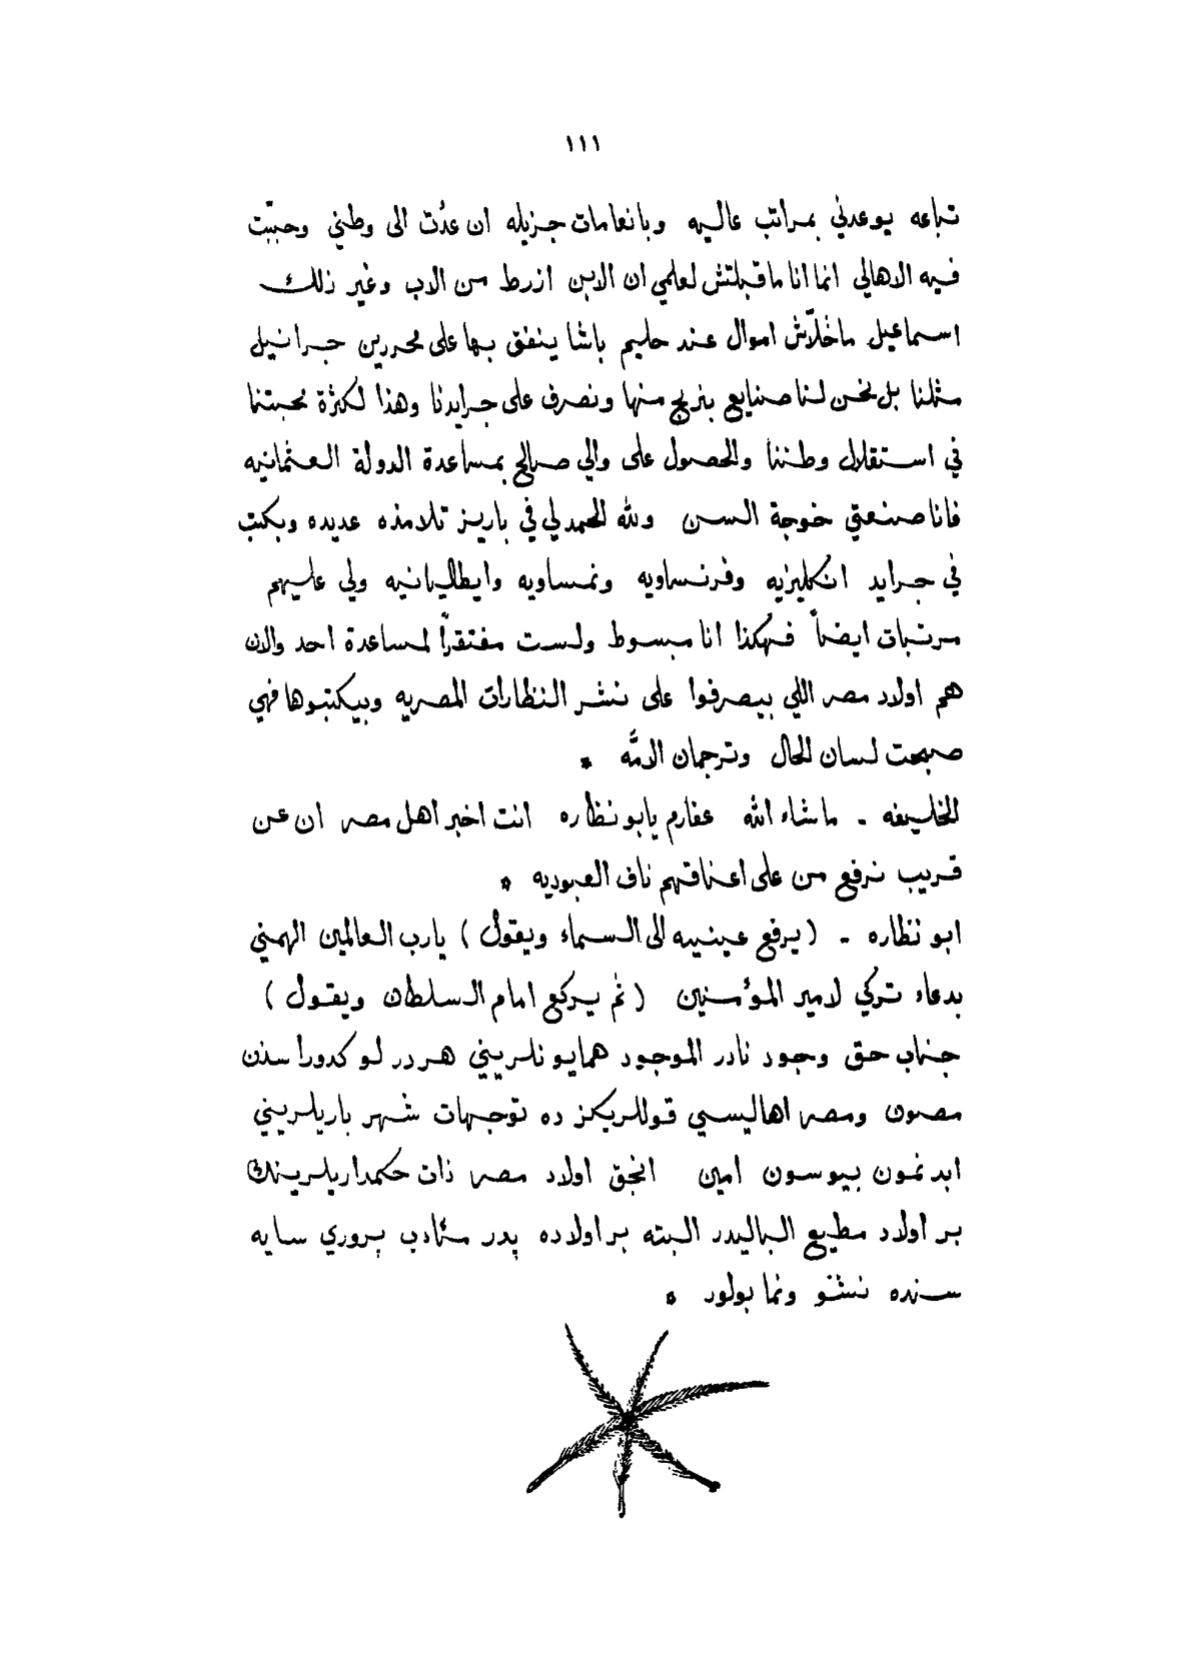 ١١١
تباعه يوعدني بمراتب عاليه وبانعامات جزيله ان عدُت الى وطني وحبيّت
فيه الاهالي انما انا ماقبلتش لعلمي ان الابن ازرط من الاب وغير ذلك
اسماعيل ماخلاّش اموال عند حليم باشا ينفق بها على محررين جرانيل
مثلنا بل نحن لنا صنايع بنربح منها ونصرف على جرايدنا وهذا لكثرة محبتنا
في استقلال وطننا والحصول على والي صالح بمساعدة الدولة العثمانيه
فانا صنعتي خوجة السن ولله الحمد لي في باريز تلامذه عديده وبكتب
في جرايد انكليزيه وفرنساويه ونمساويه وايطاليانيه ولي عليهم
مرتبات ايضاً فهكذا انا مبسوط ولست مفتقراً لمساعدة احد والان
هم اولاد مصر اللي بيصرفوا على نشر النظارات المصريه وبيكتبوها فهي
صبحت لسان الحال وترجمان الامَّه *
الخليفه - ماشاء الله عفارم يابو نظاره انت اخبر اهل مصر ان عن
قريب نرفع من على اعناقهم ناف العبوديه *
ابو نظاره - (يرفع عينيه الى السماء ويقول) يارب العالمين الهمني
بدعاء تركي لامير المؤمنين (ثم يركع امام السلطان ويقول)
جناب حق وجود نادر الموجود همايونلريني هردر لو كدوراسندن
مصون ومصر اهاليسي قوللريكز ده توجهات شهر باريلريني
ابد نمون بيوسون امين انجق اولاد مصر ذات حكمداريلرينك
بر اولاد مطيع الباليدر البته بر اولاده پدر مئادب پروري سايه
سنده نشئو ونما بولور *